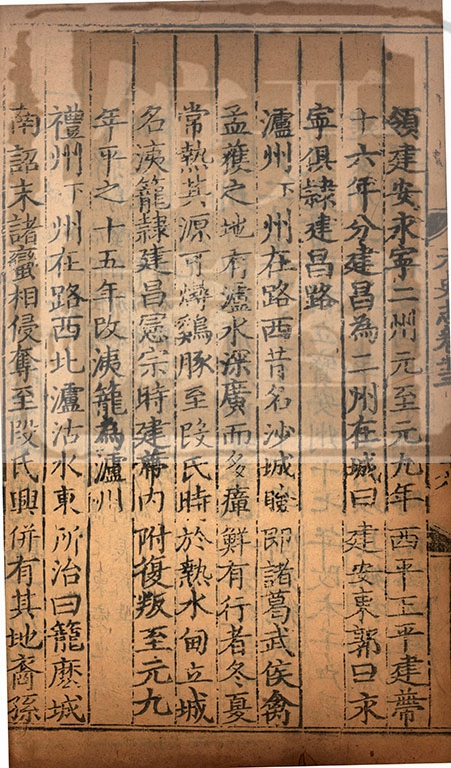 領建安永寧二州元至元九年西平王平建蔕
十六年分建昌為二州在城曰建安東郭曰永
寧俱隷建昌路
瀘州下州在路西昔名沙城瞼即諸葛武侯禽
孟獲之地有瀘水深廣而多瘴鮮有行者冬夏
常熱其源可燖鷄豚至段氏時於熱水甸立城
名洟籠隷建昌憲宗時建蔕内附復叛至元九
年平之十五年改洟籠為瀘州
禮州下州在路西北瀘沽水東所治曰籠麽城
南詔末諸蠻相侵奪至段氏興併有其地裔孫